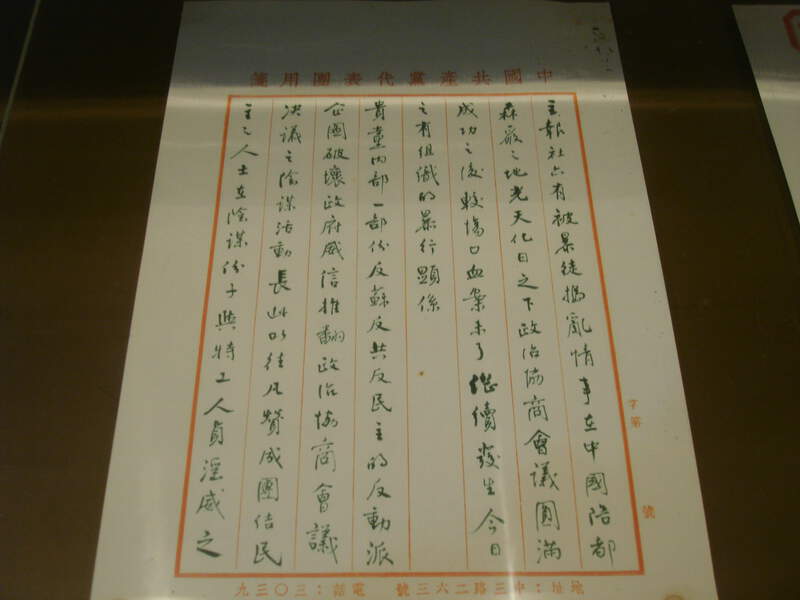 中國共產黨代表團用箋
字第 號
主報社亦有被暴徒搗亂情事在中國陪都
森嚴之地光天化日之下政治協商會議圓滿
成功之後較場口血案未了繼續發生今日
之有組織的暴行顯係
貴黨內部一部份反蘇反共反民主的反動派
企圖破壞政府威信推翻政治協商會議
決議之陰謀活動長此以往凡贊成團結民
主之人士在陰謀份子與特工人員淫威之
地址:中三路二六三號 電話:三〇三九